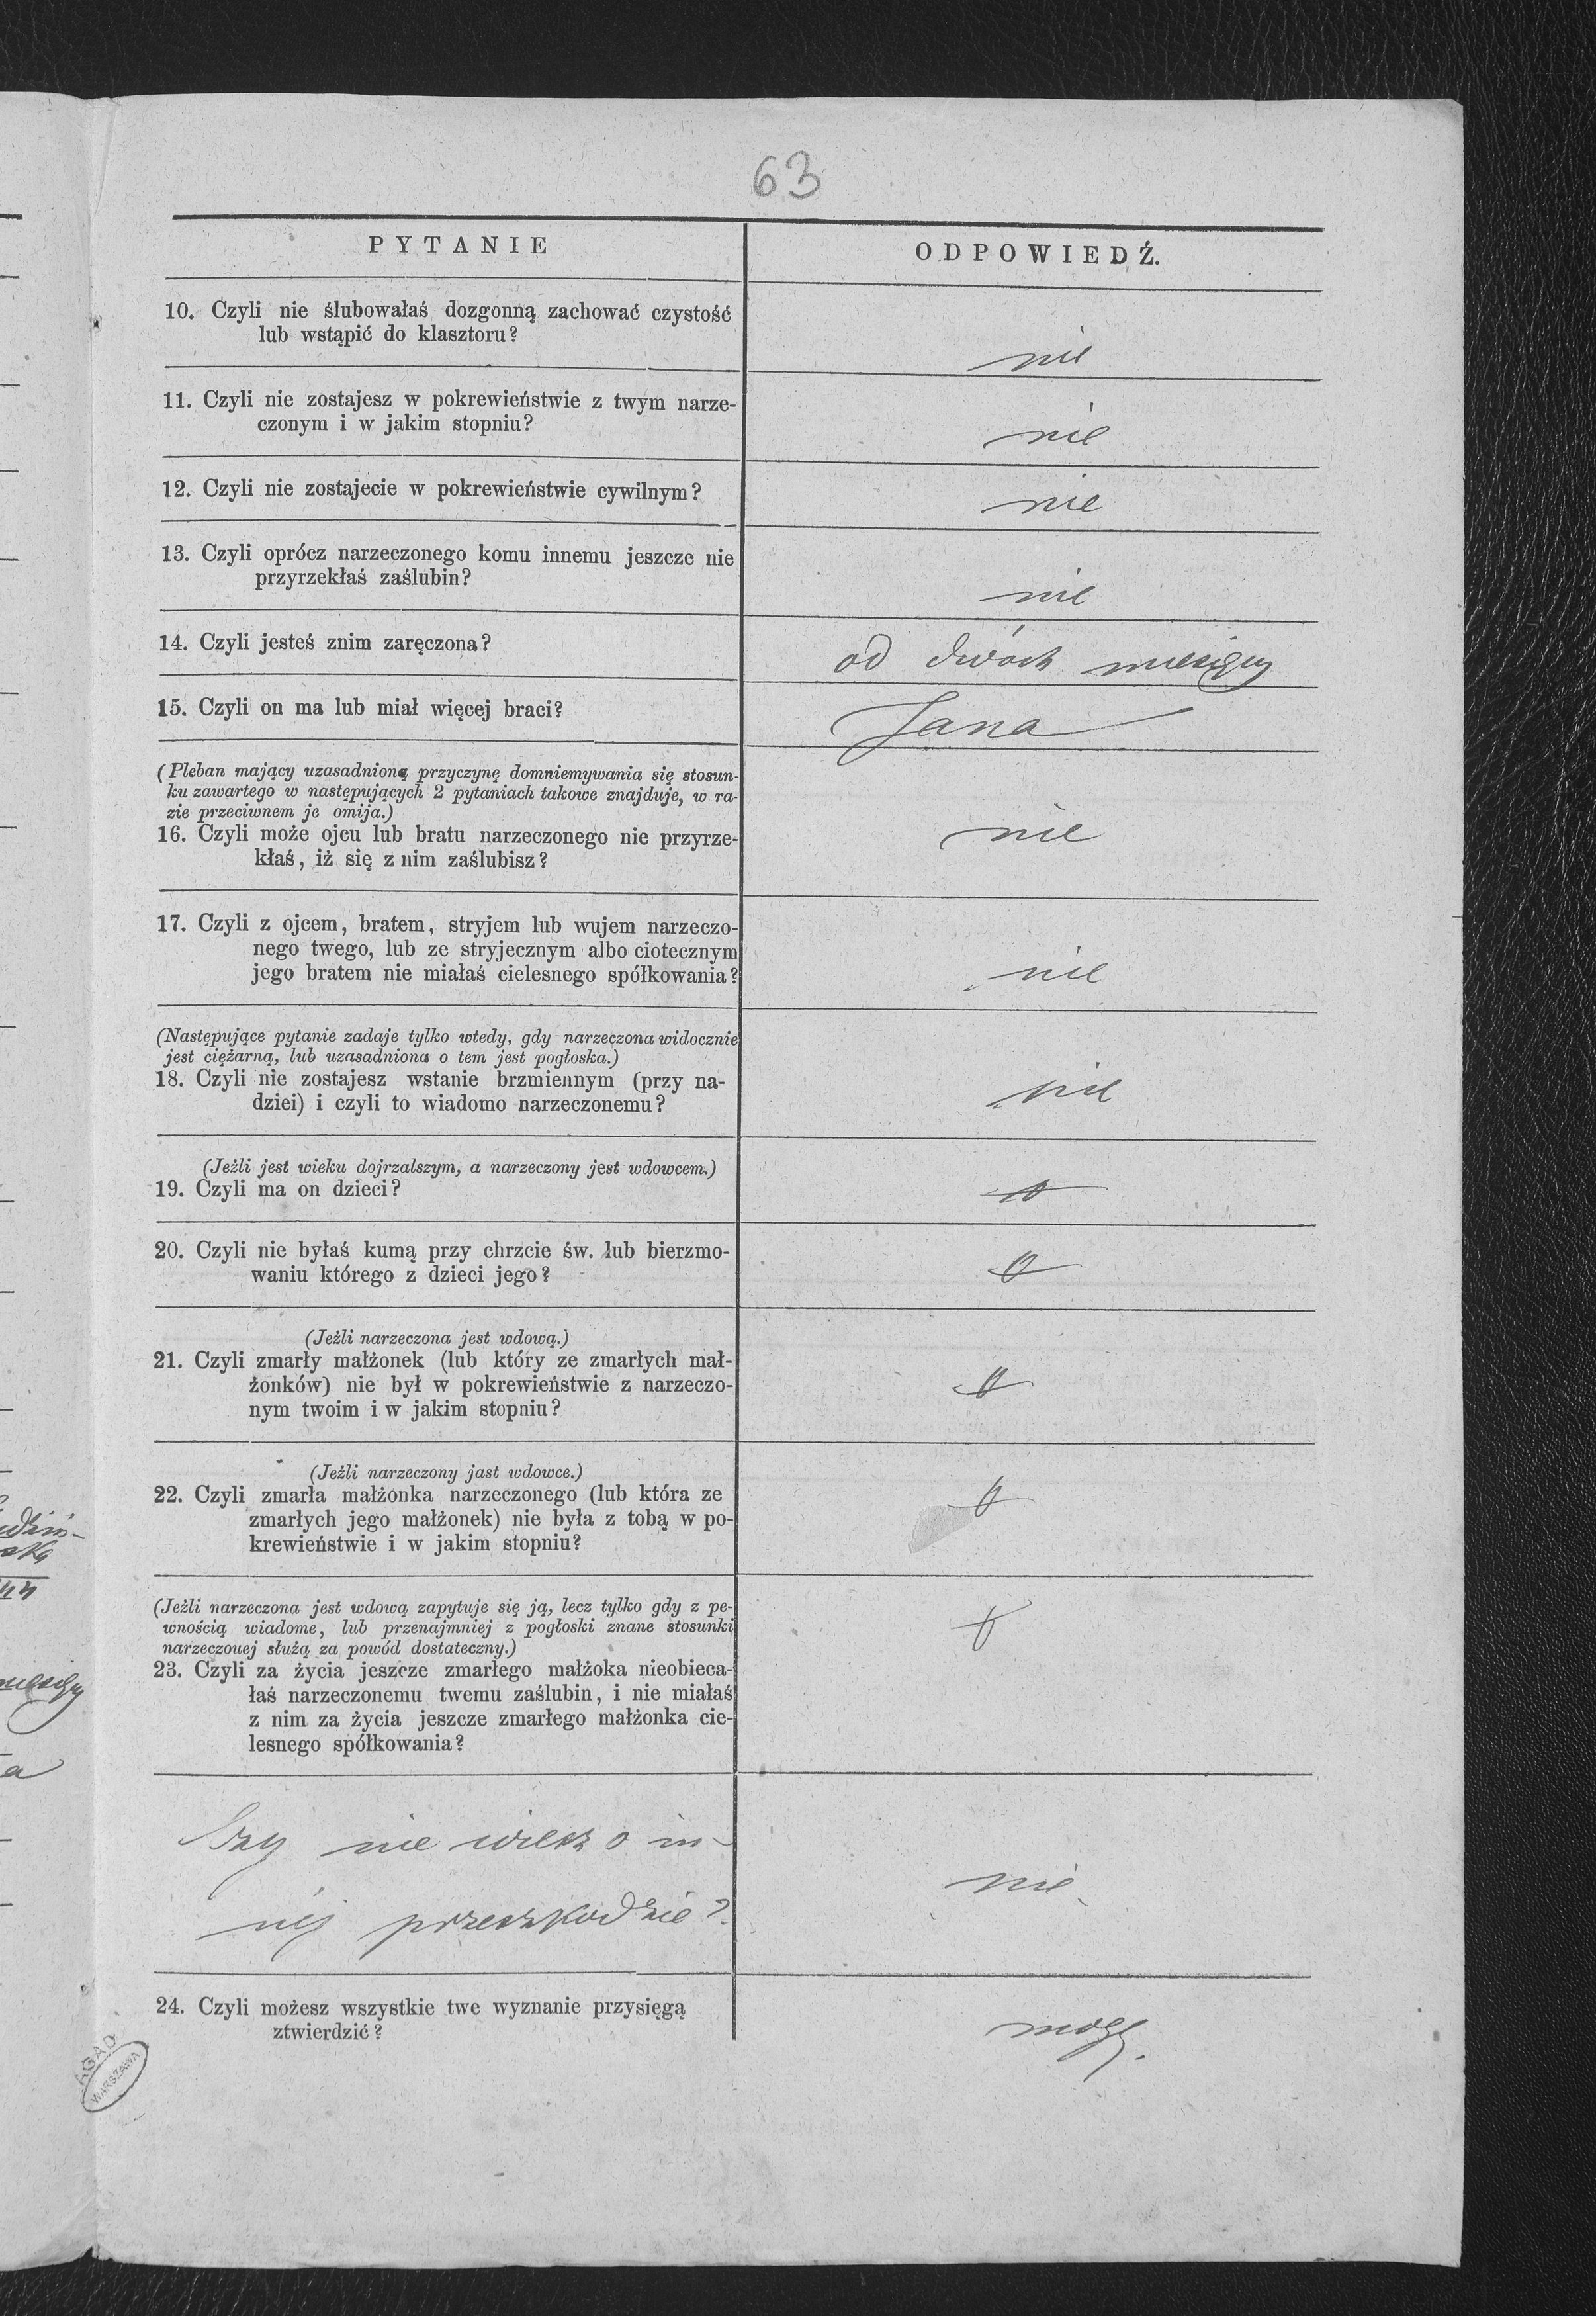 63
PYTANIE
ODPOWIEDŹ.
10. Czyli nie ślubowałaś dozgonną zachować czystość
lub wstąpić do klasztoru?
nie
11. Czyli nie zostajesz w pokrewieństwie z twym narze-
czonym i w jakim stopniu?
nie
12. Czyli nie zostajecie w pokrewieństwie cywilnym?
nie
13. Czyli oprócz narzeczonego komu innemu jeszcze nie
przyrzekłaś zaślubin?
nie
14. Czyli jesteś znim zaręczona?
od dwóch miesięcy
15. Czyli on ma lub miał więcej braci?
Jana
(Pleban mający uzasadnioną przyczynę domniemywania się stosun-
ku zawartego w następujących 2 pytaniach takowe znajduje, w ra-
zie przeciwnem je omija.)
16. Czyli może ojcu lub bratu narzeczonego nie przyrze-
kłaś, iż się z nim zaślubisz?
nie
17. Czyli z ojcem, bratem, stryjem lub wujem narzeczo-
nego twego, lub ze stryjecznym albo ciotecznym
jego bratem nie miałaś cielesnego spółkowania?
nie
(Następujące pytanie zadaje tylko wtedy, gdy narzeczona widocznie
jest ciężarną, lub uzasadniona o tem jest pogłoska.)
18. Czyli nie zostajesz wstanie brzmiennym (przy na-
dziei) i czyli to wiadomo narzeczonemu?
nie
(Jeźli jest wieku dojrzalszym, a narzeczony jest wdowcem.)
19. Czyli ma on dzieci?
20. Czyli nie byłaś kumą przy chrzcie św. lub bierzmo-
waniu którego z dzieci jego?
(Jeźli narzeczona jest wdową.)
21. Czyli zmarły małżonek (lub który ze zmarłych mał-
żonków) nie był w pokrewieństwie z narzeczo-
nym twoim i w jakim stopniu?
(Jeźli narzeczony jast wdowce.)
22. Czyli zmarła małżonka narzeczonego (lub która ze
zmarłych jego małżonek) nie była z tobą w po-
krewieństwie i w jakim stopniu?
(Jeźli narzeczona jest wdową zapytuje się ją, lecz tylko gdy z pe-
wnością wiadome, lub przenajmniej z pogłoski znane stosunki
narzeczouej służą za powód dostateczny.)
23. Czyli za życia jeszcze zmarłego małżoka nieobieca-
łaś narzeczonemu twemu zaślubin, i nie miałaś
z nim za życia jeszcze zmarłego małżonka cie-
lesnego spółkowania?
Czy nie wiesz o in-
nej przeszkodzie?
nie
24. Czyli możesz wszystkie twe wyznanie przysięgą
ztwierdzić?
mogę.
AGAD
WARSZAWA